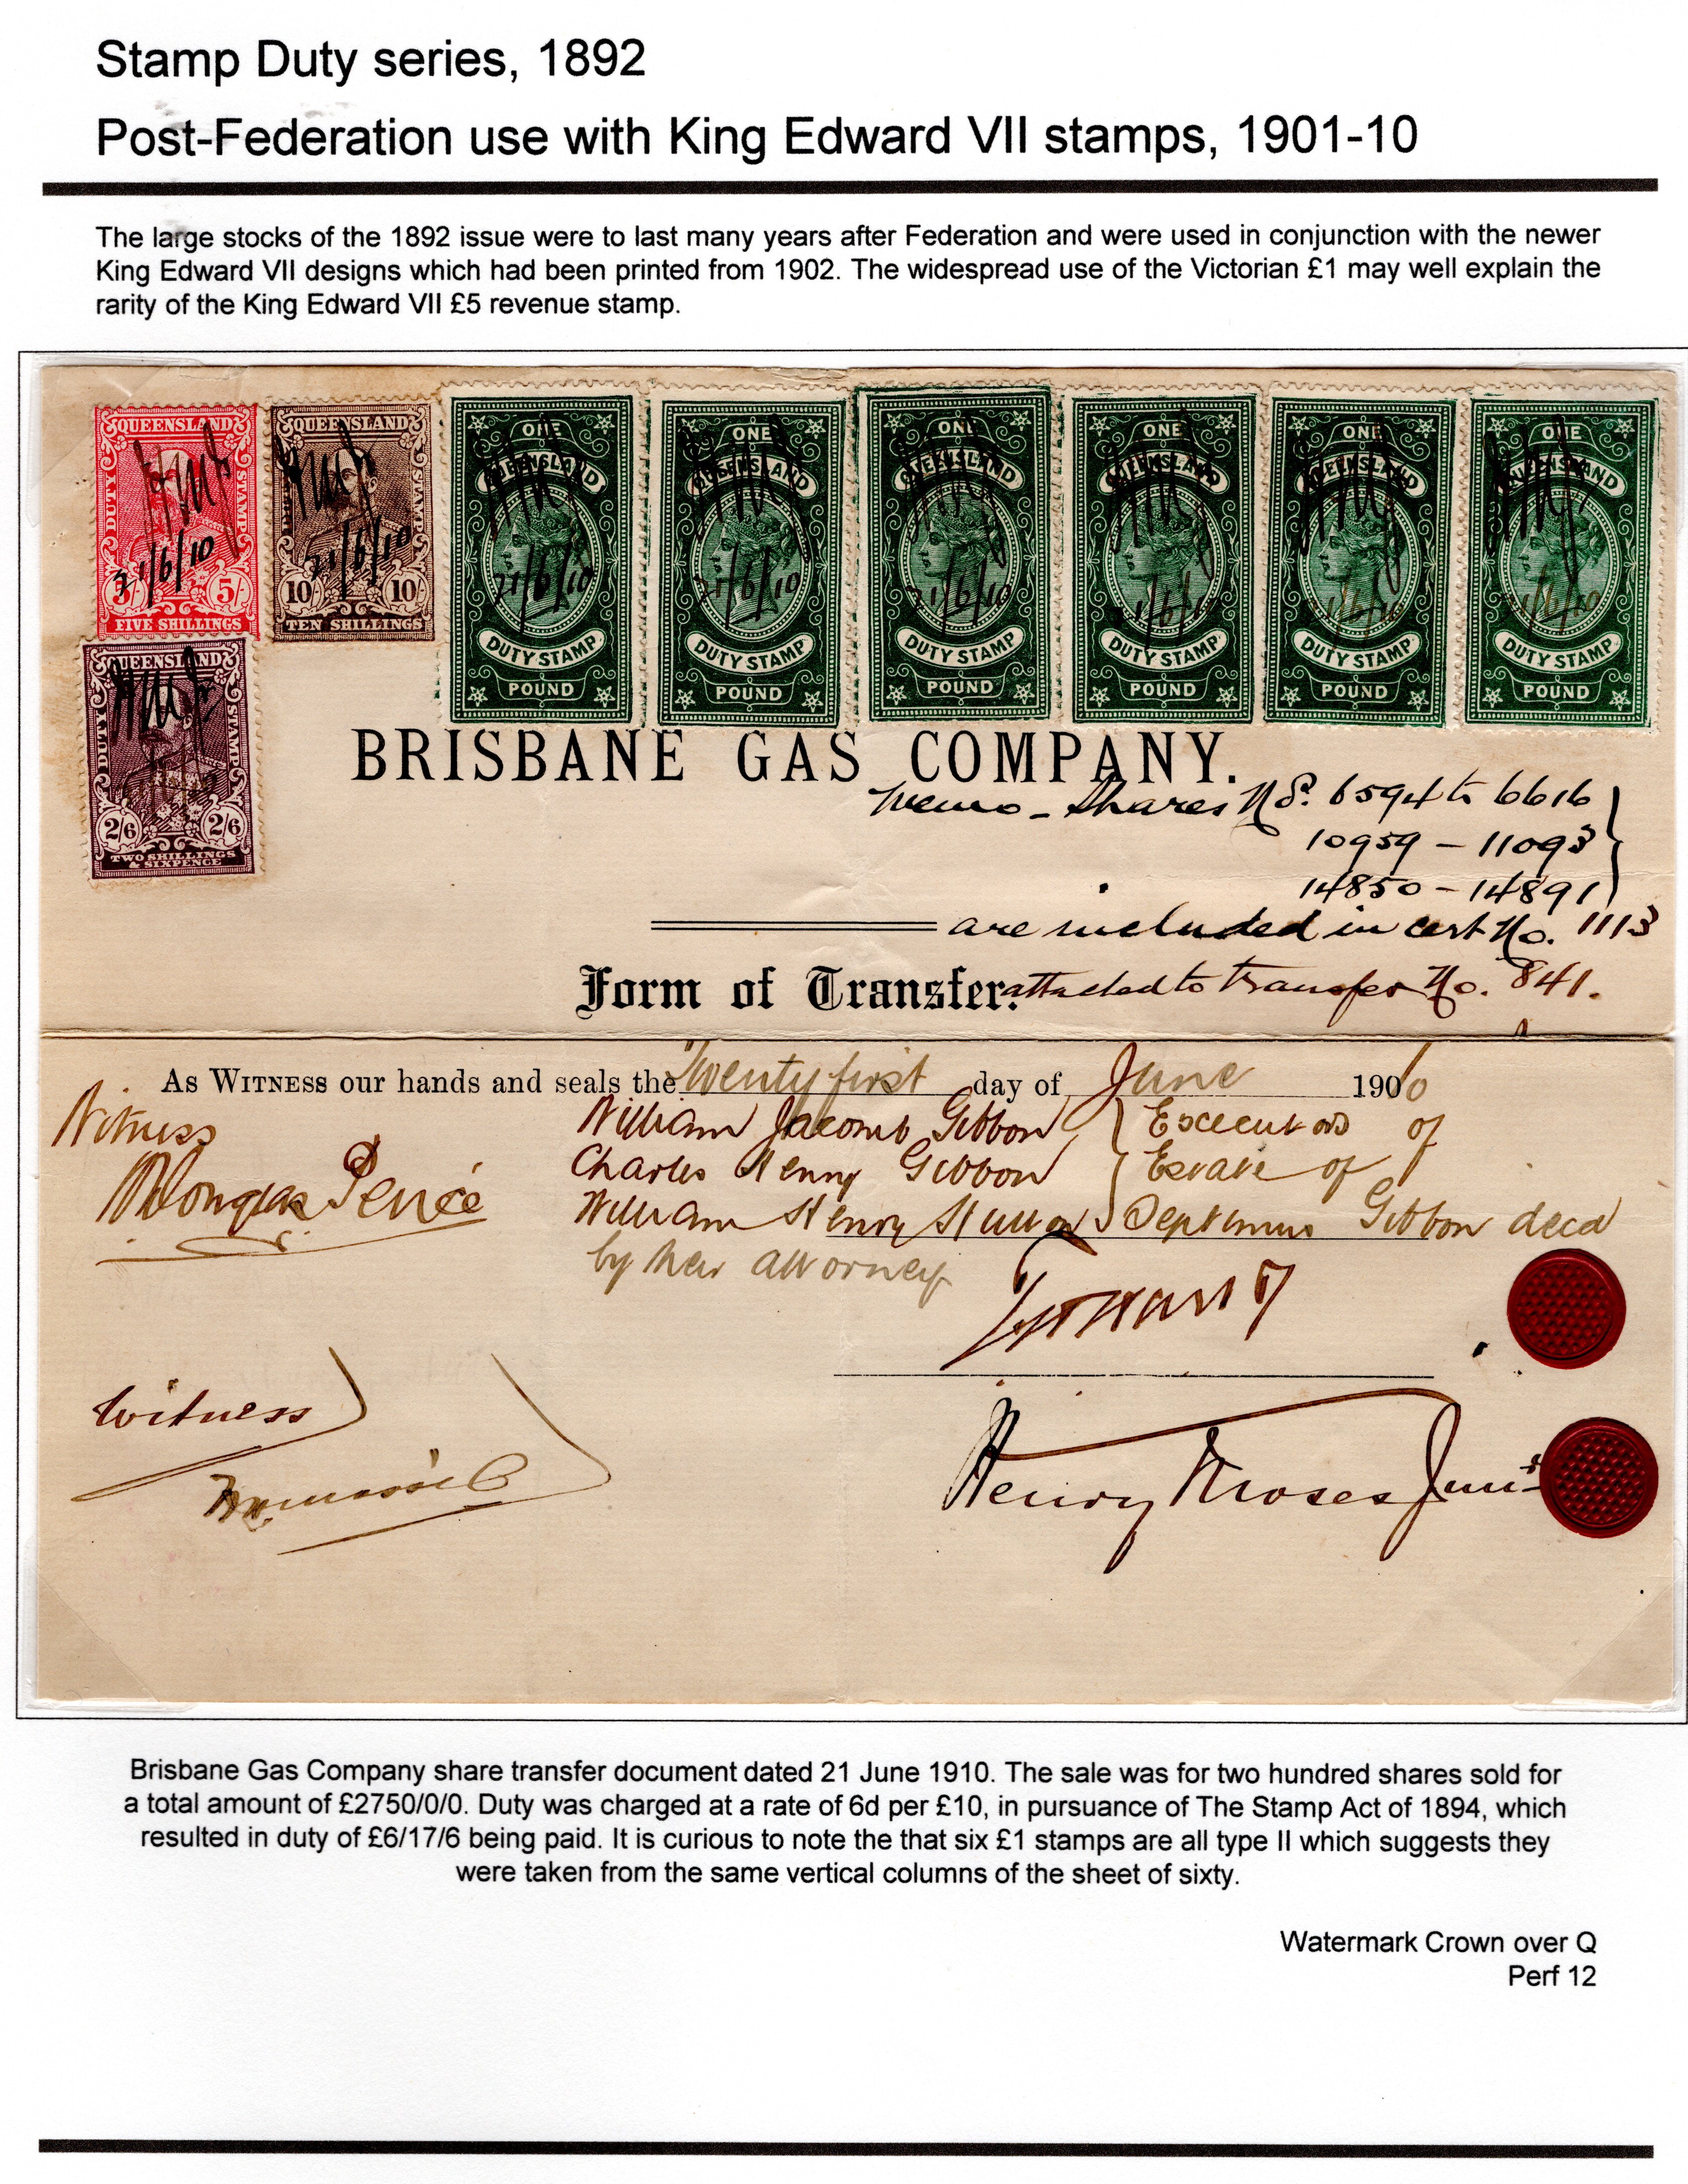 Stamp Duty series, 1892
Post-Federation use with King Edward VII stamps, 1901-10
The large stocks of the 1892 issue were to last many years after Federation and were used in conjunction with the newer
King Edward VII designs which had been printed from 1902. The widespread use of the Victorian £1 may well explain the
rarity of the King Edward VII £5 revenue stamp.
QUEENSLAND
DUTY STAMP
21/6/10
5/- 5/-
FIVE SHILLINGS
QUEENSLAND
DUTY STAMP
21/6/10
10/- 10/-
TEN SHILLINGS
ONE
QUEENSLAND
21/6/10
DUTY STAMP
POUND
ONE
QUEENSLAND
21/6/10
DUTY STAMP
POUND
ONE
QUEENSLAND
21/6/10
DUTY STAMP
POUND
ONE
QUEENSLAND
21/6/10
DUTY STAMP
POUND
ONE
QUEENSLAND
21/6/10
DUTY STAMP
POUND
ONE
QUEENSLAND
21/6/10
DUTY STAMP
POUND
QUEENSLAND
DUTY STAMP
2/6 2/6
TWO SHILLINGS
& SIXPENCE
BRISBANE GAS COMPANY.
Memo - Shares Nos. 6594 to 6616
10959 - 11093
14850 - 14891
are included in cert No. 1113
Form of Transfer. attached to transfer No. 841.
As Witness our hands and seals the Twenty first day of June 1910
Witness
William Jacomb Gibbon } Executors of
Charles Henry Gibbon } Estate of
Douglas
William Henry } Septimus Gibbon decd
by their attorney
Witness
Henry Moses Junr
Brisbane Gas Company share transfer document dated 21 June 1910. The sale was for two hundred shares sold for
a total amount of £2750/0/0. Duty was charged at a rate of 6d per £10, in pursuance of The Stamp Act of 1894, which
resulted in duty of £6/17/6 being paid. It is curious to note the that six £1 stamps are all type II which suggests they
were taken from the same vertical columns of the sheet of sixty.
Watermark Crown over Q
Perf 12